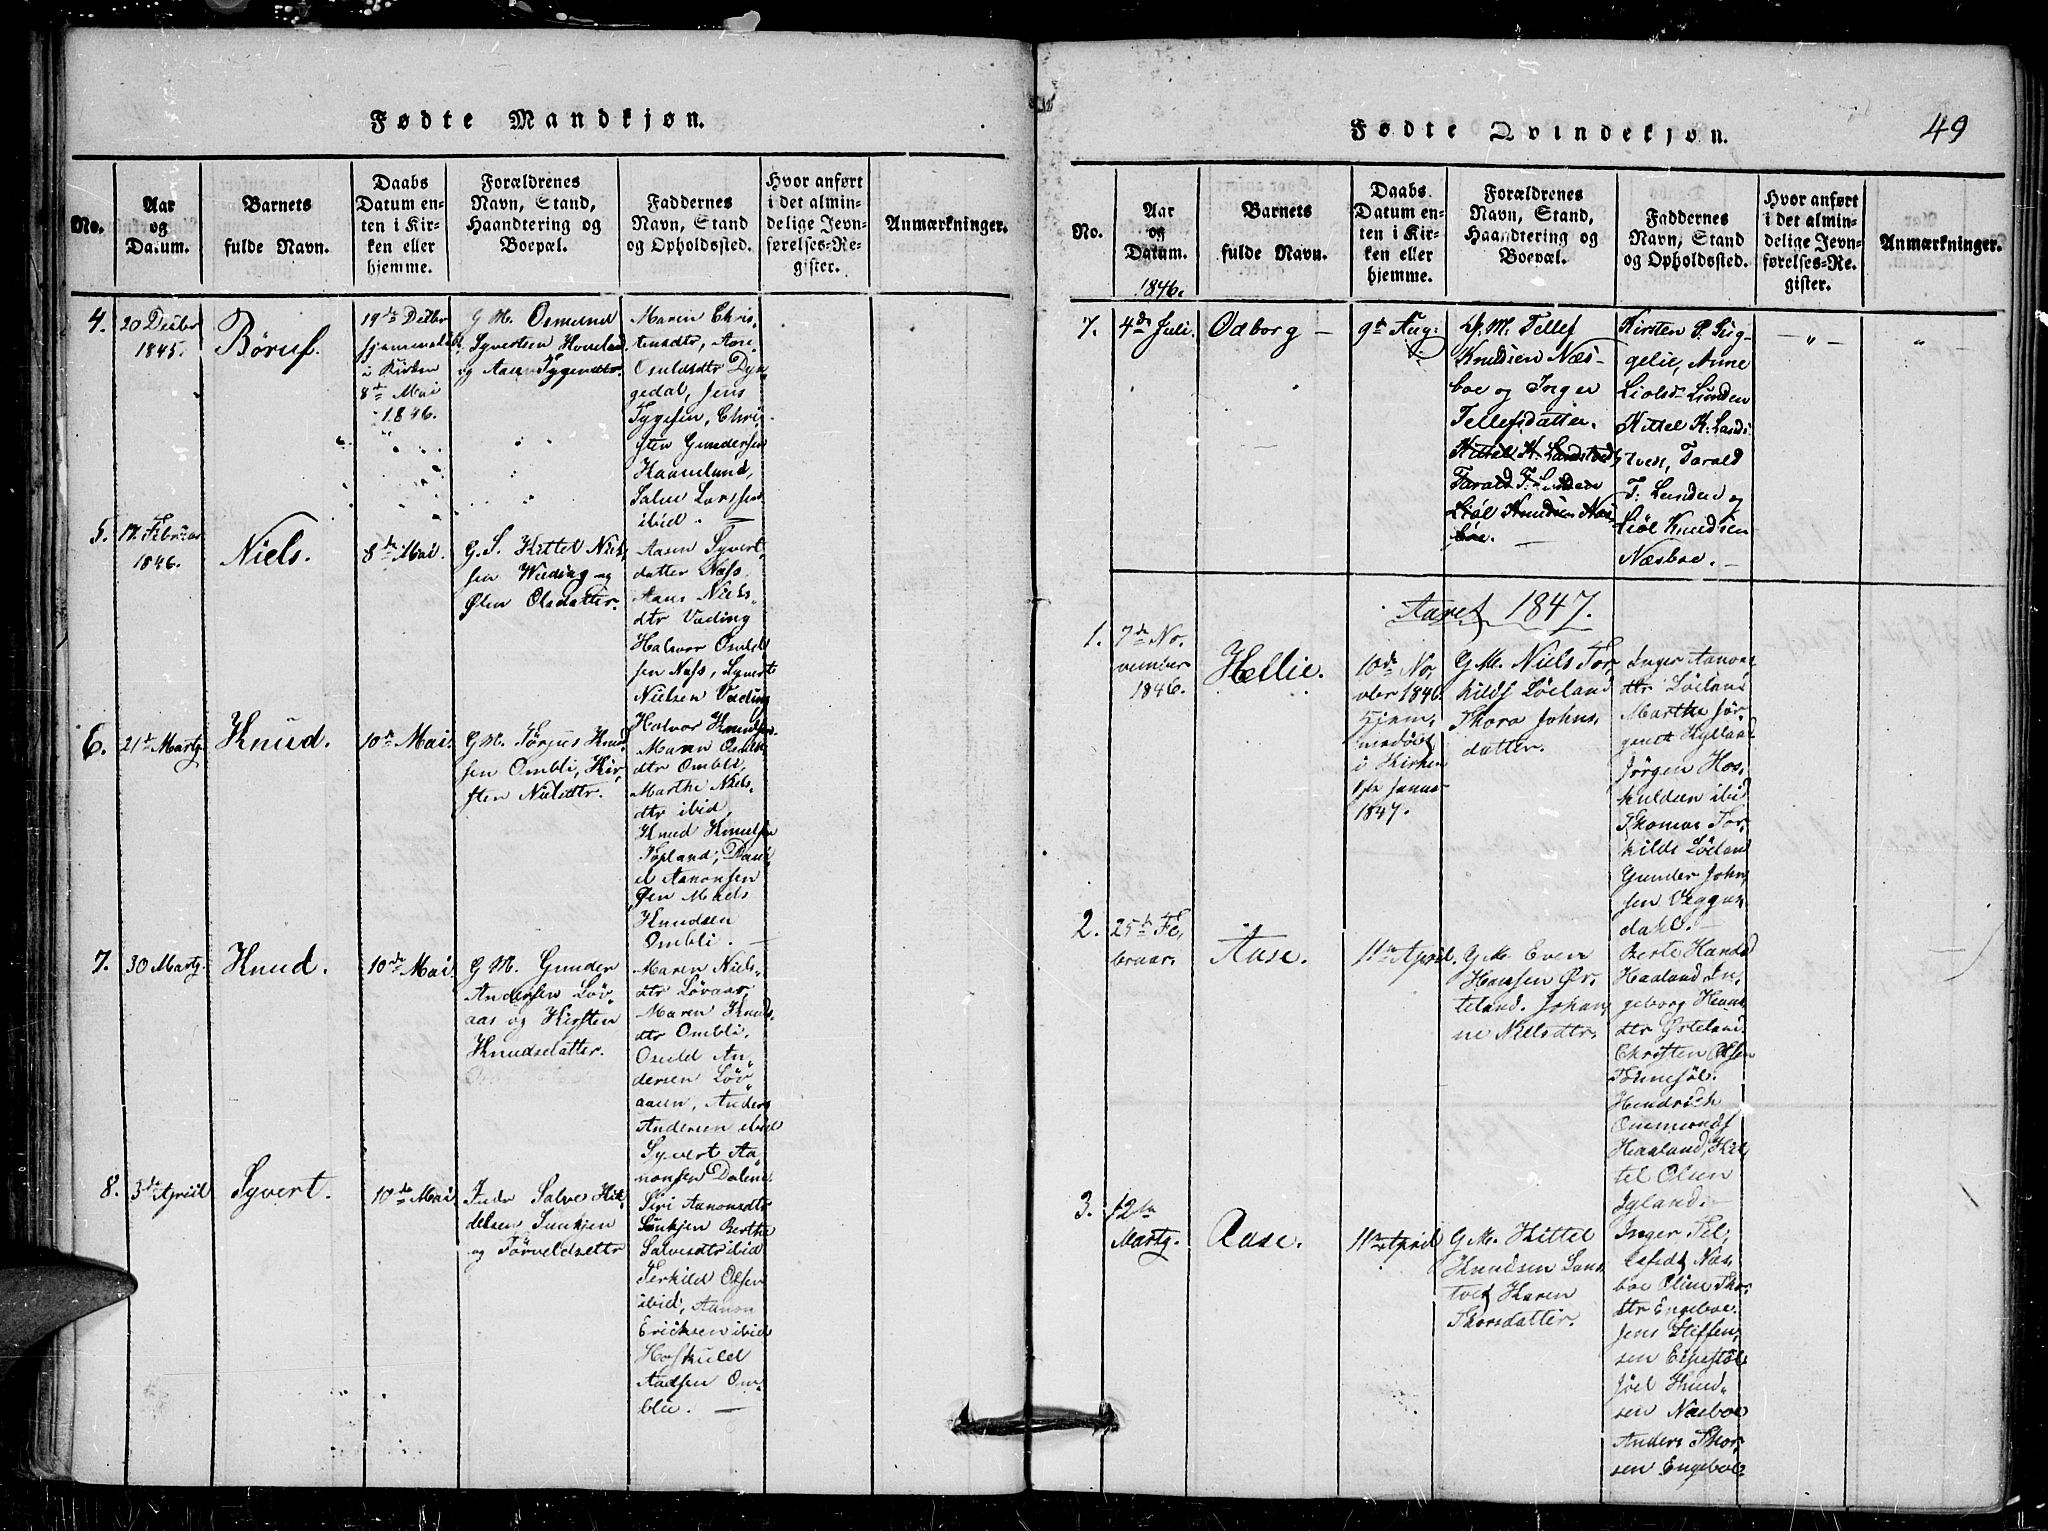 Fødte Mandkjøn.
No.
Aar
og
Datum.
Barnets
fulde Navn.
Daabs
Datum en-
ten i Kir-
ken eller
hjemme.
Forældrenes
Navn, Stand,
Haandtering og
Boepæl.
Faddernes
Navn, Stand
og Opholdssted.
Hvor anført
i det almin-
delige Jevn-
førelses-Re-
gister.
Anmærkninger.
4.
20 Decbr
1845.
19de Decbr
i Kirken
8de Mai
1846.
G. M. Osmund
Syvertsen
og Aasen Tygesdtr.
Maren Chris-
tensdtr, Aase
Osuldsdtr Dyn-
gedal, Jens
Tygesen, Chri-
sten Gundersen
Haaneland,
Salve Larssen
ibid. —
5.
17 Februar
1846.
Niels.
8de Mai.
G. S. Kittel Niel-
sen Vading og
Ølen Olsdatter.
Aasen Syvert-
datter Næss
Aase Niels-
dtr Vading
Halvor Osmund-
sen Næss, Syvert
Nielsen Vading
6.
21de Martz.
Knud.
10de Mai.
G. M. Tørjus Knud-
sen Ombli, Kir-
sten Nielsdtr.
Halvor Knudsen
Maren Osmunds-
dtr Ombli,
Marthe Niels-
dtr ibid,
Knud Knudsen
Topland, Dani-
el Aanonsen
Øen Mads
Knudsen
Ombli. —
7.
30 Martz.
Knud.
10de Mai.
G. M. Gunder
Andersen Løv-
aas og Kirsten
Knudsdatter.
Maren Niels-
dtr Løvaas
Maren Knuds-
dtr Ombli,
Osuld An-
dersen Løv-
aasen, Anders
Andersen ibid
8.
3de April
Syvert.
10de Mai
Indr Salve Kit-
delsen Sunkjen
og Torveldsdttr
Syvert Aa-
nonsen Dolene
Siri Aanonsdtr
Sunkjen Berthe
Salvesdtr ibid
Terkild Olsen
ibid, Aanon
Ericksen ibid
Hoskuld
Aadsen Om-
bli. —
Fødte Qvindekjøn.
49
No.
Aar
og
Datum.
1846.
Barnets
fulde Navn.
Daabs
Datum en-
ten i Kir-
ken eller
hjemme.
Forældrenes
Navn, Stand,
Haandtering og
Boepæl.
Faddernes
Navn, Stand
og Opholdssted.
Hvor anført
i det almin-
delige Jevn-
førelses-Re-
gister.
Anmærkninger.
7.
4de Juli.
Odborg —
9de Aug:
G. M. Tellef
Knudsen Næs-
boe og Inger
Tellefsdatter.
Kittel K. Landstved
Tarald T. Lunden
Liøl Knudsen Næs-
boe.
Kirsten P. Lig-
gelie, Anne
Liolsdr Lunden
Kittel K. Lands-
tved, Tarald
T. Lunden og
Liøl Knudsen
Næsboe. —
— " —
"
Aaret 1847.
1.
7de No-
vember
1846.
Hellie.
10de No-
vbr 1846
Hjem-
medøbt
i Kirken
Januar
1847.
G. M. Niels Tor-
kilds Løeland
Thora Johns-
datter.
Inger Aanons-
dtr Løeland
Marthe Jør-
gensd Hylland
Jørgen Hos-
kuldsen ibid
Thomas Tor-
kilds Løeland
Gunder John-
sen Veggus-
dahl. —
2.
25de Fe-
bruar.
Aase.
11te April.
G. M. Even
Hansen Ør-
teland. Johan-
ne Nielsdtr.
Berte Hansd
Haaland In-
geborg Hans-
dtr Ørteland
Christen Olsen
Hendrich
Haaland, Kit-
tel Olsen
Igland. —
3.
12te
Martz.
Aase.
11te April
G. M. Kittel
Knudsen Lans-
tved Karen
Thorsdatter.
Inger Tel-
lefsdt Næs-
boe Oline Thor-
dtr Engeboe.
Jens Steffen-
sen Espestøl
Jøel Knud-
sen Næsboe
Anders Thor-
sen Engeboe